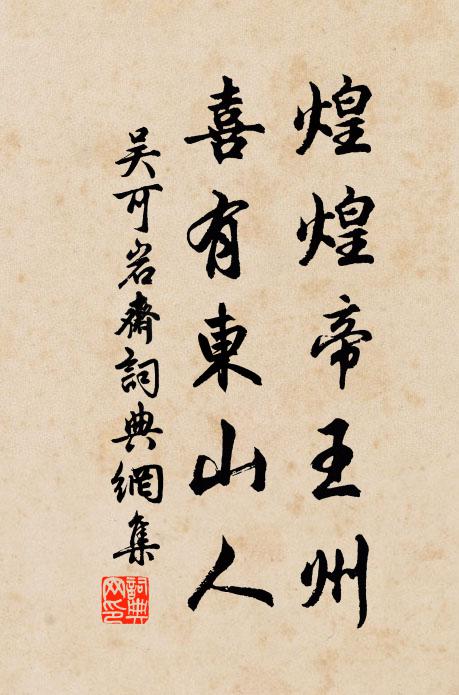 煌煌帝王州
喜有東山人
吴可岩齋詞典網集
詞典
网印